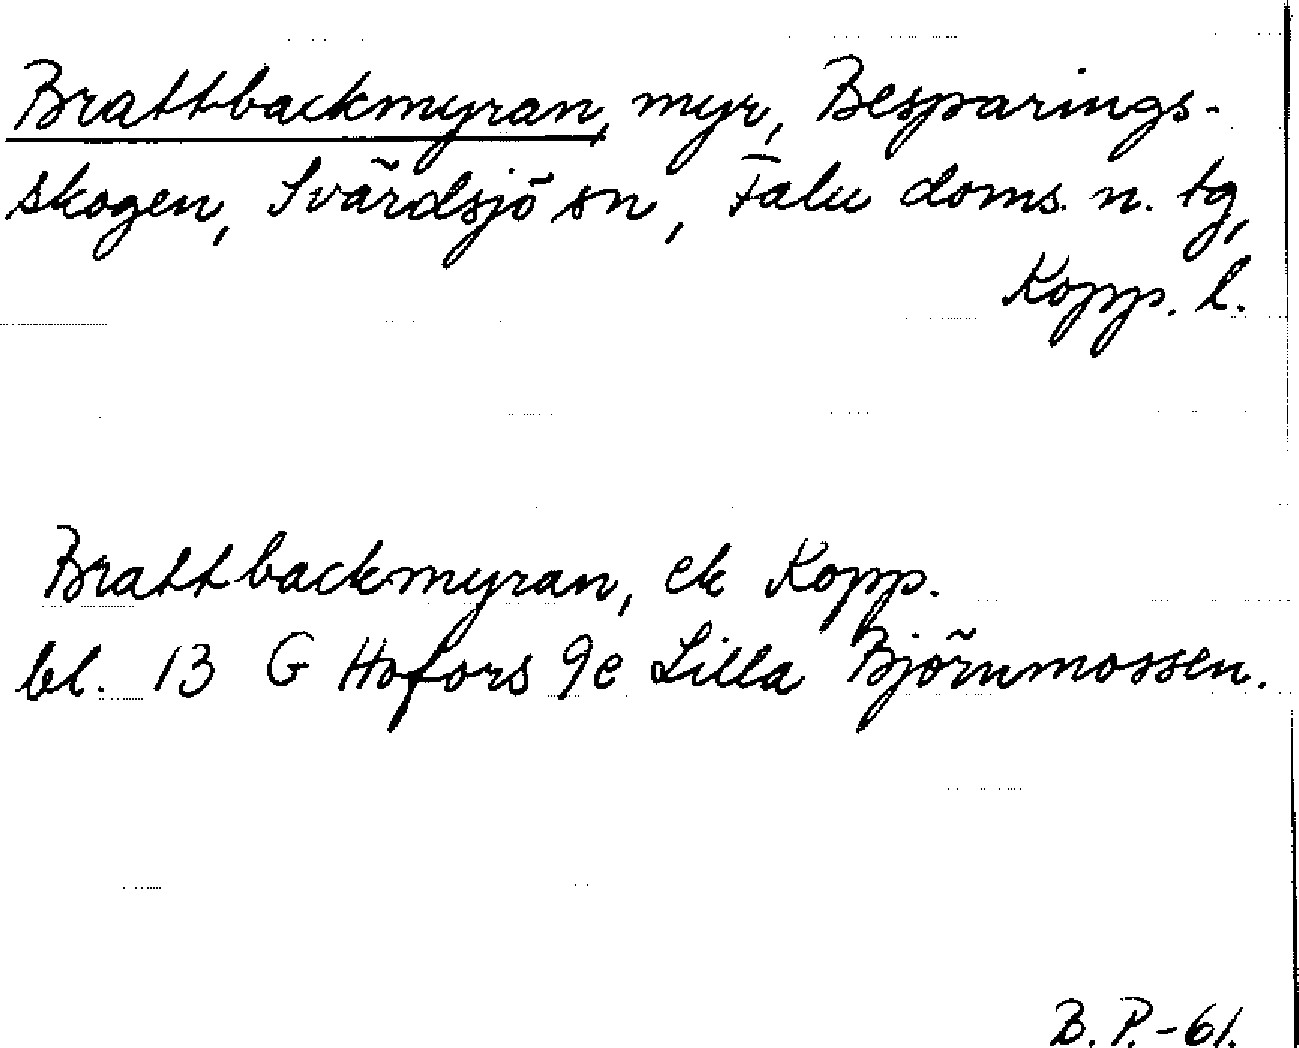 Brattbackmyran, myr, Besparings-
skogen, Svärdsjö sn, Falu doms. n. tg,
Kopp. l.
Brattbackmyran, ek Kopp.
bl. 13 G Hofors 9e Lilla Björnmossen.
B. P. -61.